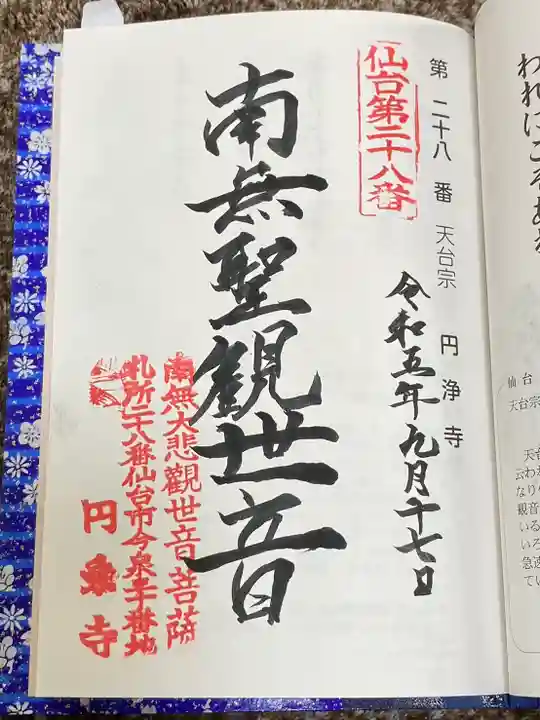 われにこそある
仙台
天台宗
天台
云わ
なり
観音
いる
いろ
急速
てい
第二十八番 天台宗 円浄寺
仙台第二十八番
令和五年九月十七日
南無聖観世音
南無大悲觀世音菩薩
札所二十八番仙台市今泉二十番地
円
寺